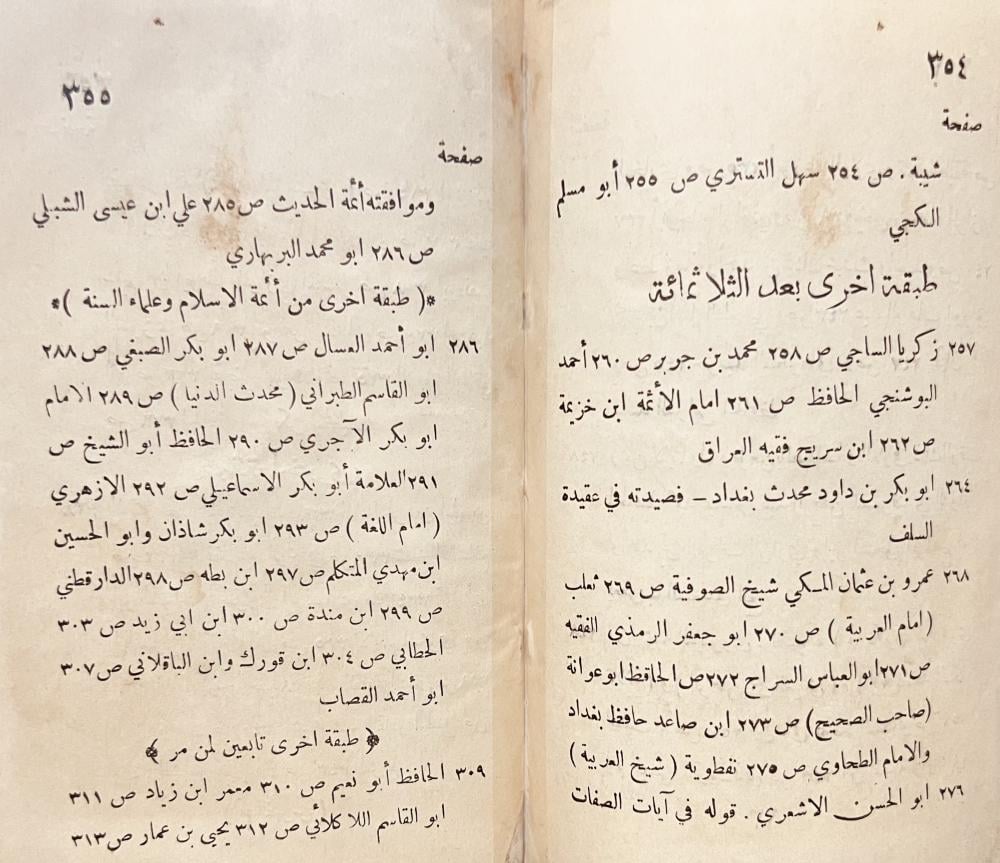 ٣٥٤
صفحة
شيبة . ص ٢٥٤ سهل التستري ص ٢٥٥ أبو مسلم
الكجي
طبقة اخرى بعد الثلاثمائة
٢٥٧ زكريا الساجي ص ٢٥٨ محمد بن جوبر ص ٢٦٠ أحمد
البوشنجي الحافظ ص ٢٦١ امام الأئمة ابن خزيمة
ص ٢٦٢ ابن سريج فقيه العراق
٢٦٤ ابو بكر بن داود محدث بغداد – قصيدته في عقيدة
السلف
٢٦٨ عمرو بن عثمان المكي شيخ الصوفية ص ٢٦٩ ثعلب
(امام العربية ) ص ٢٧٠ ابو جعفر الرمذي الفقيه
ص ٢٧١ ابو العباس السراج ٢٧٢ ص الحافظ ابو عوانة
(صاحب الصحيح) ص ٢٧٣ ابن صاعد حافظ بغداد
والامام الطحاوي ص ٢٧٥ نفطوية ( شيخ العربية )
٢٧٦ ابو الحسن الاشعري . قوله في آيات الصفات
٣٥٥
صفحة
وموافقته أئمة الحديث ص ٢٨٥ علي ابن عيسى الشبلي
ص ٢٨٦ ابو محمد البربهاري
*( طبقة اخرى من أئمة الاسلام وعلماء السنة )*
٢٨٦ ابو أحمد العسال ص ٢٨٧ ابو بكر الصبغي ص ٢٨٨
ابو القاسم الطبراني ( محدث الدنيا ) ص ٢٨٩ الامام
ابو بكر الآجري ص ٢٩٠ الحافظ أبو الشيخ ص
٢٩١ العلامة أبو بكر الاسماعيلي ص ٢٩٢ الازهري
( امام اللغة ) ص ٢٩٣ ابو بكر شاذان وابو الحسين
ابن مهدي المتكلم ص ٢٩٧ ابن بطه ص ٢٩٨ الدارقطني
ص ٢٩٩ ابن مندة ص ٣٠٠ ابن ابي زيد ص ٣٠٣
الخطابي ص ٣٠٤ ابن فورك وابن الباقلاني ص ٣٠٧
ابو أحمد القصاب
﴿ طبقة اخرى تابعين لمن مر ﴾
٣٠٩ الحافظ أبو نعيم ص ٣١٠ معمر ابن زياد ص ٣١١
ابو القاسم اللاكلائي ص ٣١٢ يحيى بن عمار ص ٣١٣